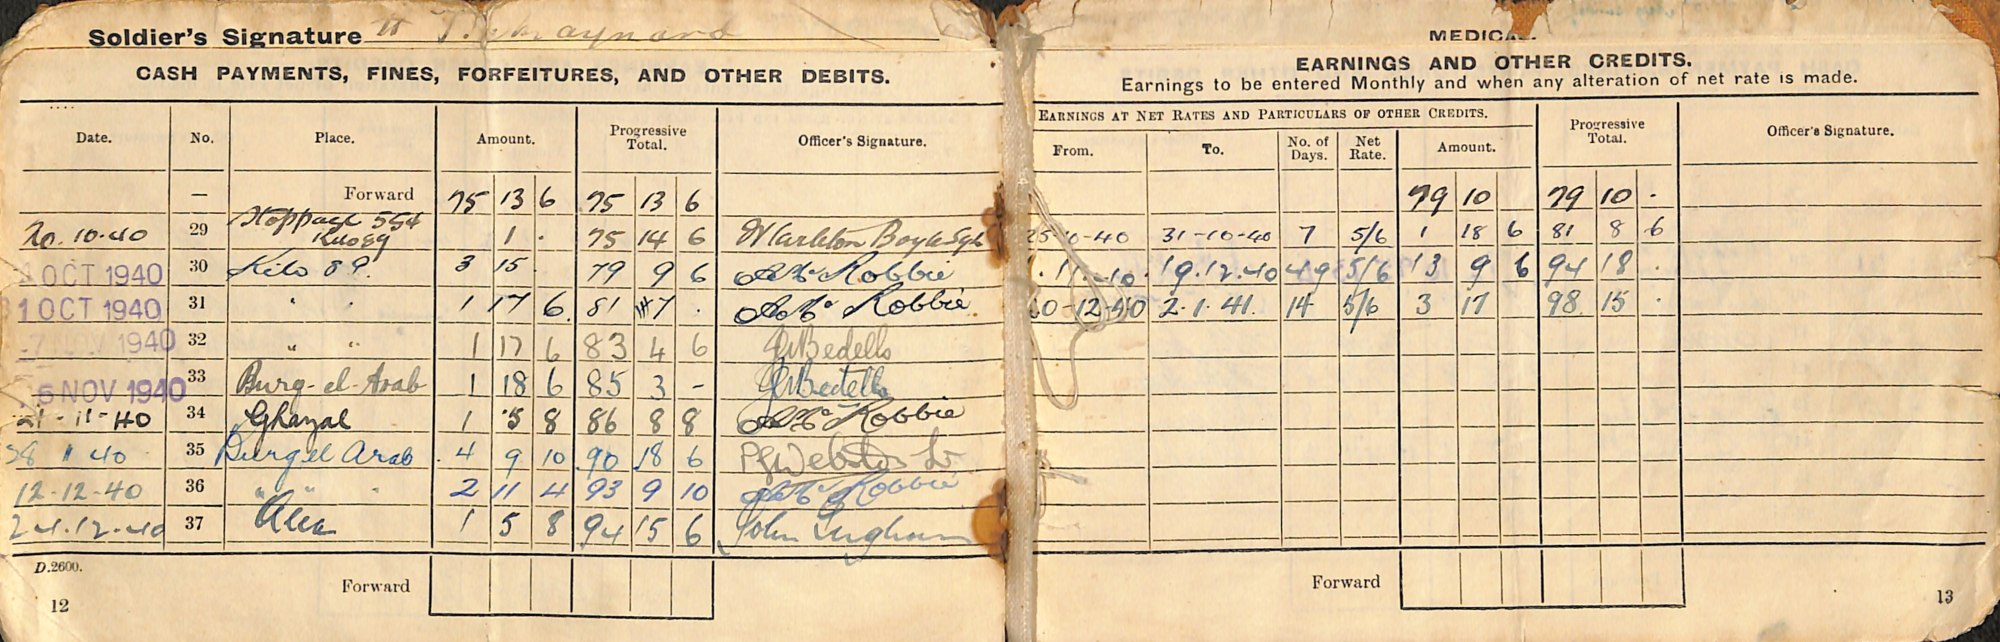 Soldier's Signature
CASH PAYMENTS, FINES, FORFEITURES, AND OTHER DEBITS.
Date. No. Place. Amount. Progressive Total. Officer's Signature.
— Forward 75 13 6 75 13 6
20.10.40 29 Stoppage 554 1 . 75 14 6
OCT 1940 30 Kilo 89. 3 15 79 9 6 Robbie
1 OCT 1940 31 " " 1 17 6. 81 7 . Robbie
7 NOV 1940 32 " " 1 17 6 83 4 6 Bedells
5 NOV 1940 33 Burg-el-Arab 1 18 6 85 3 – Bedells
21-11-40 34 Ghazal 1 5 8 86 8 8 Robbie
28 11 40 35 Burg el Arab 4 9 10 90 18 6 Webster Lt.
12-12-40 36 " " " 2 11 4 93 9 10 Robbie
24.12.40 37 Alex 1 5 8 94 15 6 John
D.2600.
Forward
12
MEDICAL
EARNINGS AND OTHER CREDITS.
Earnings to be entered Monthly and when any alteration of net rate is made.
EARNINGS AT NET RATES AND PARTICULARS OF OTHER CREDITS. Progressive Total. Officer's Signature.
From. To. No. of Days. Net Rate. Amount.
79 10 79 10 .
25-10-40 31-10-40 7 5/6 1 18 6 81 8 6
19.12.40 49 5/6 13 9 6 94 18 .
20-12-40 2.1.41. 14 5/6 3 17 98 15 .
Forward
13